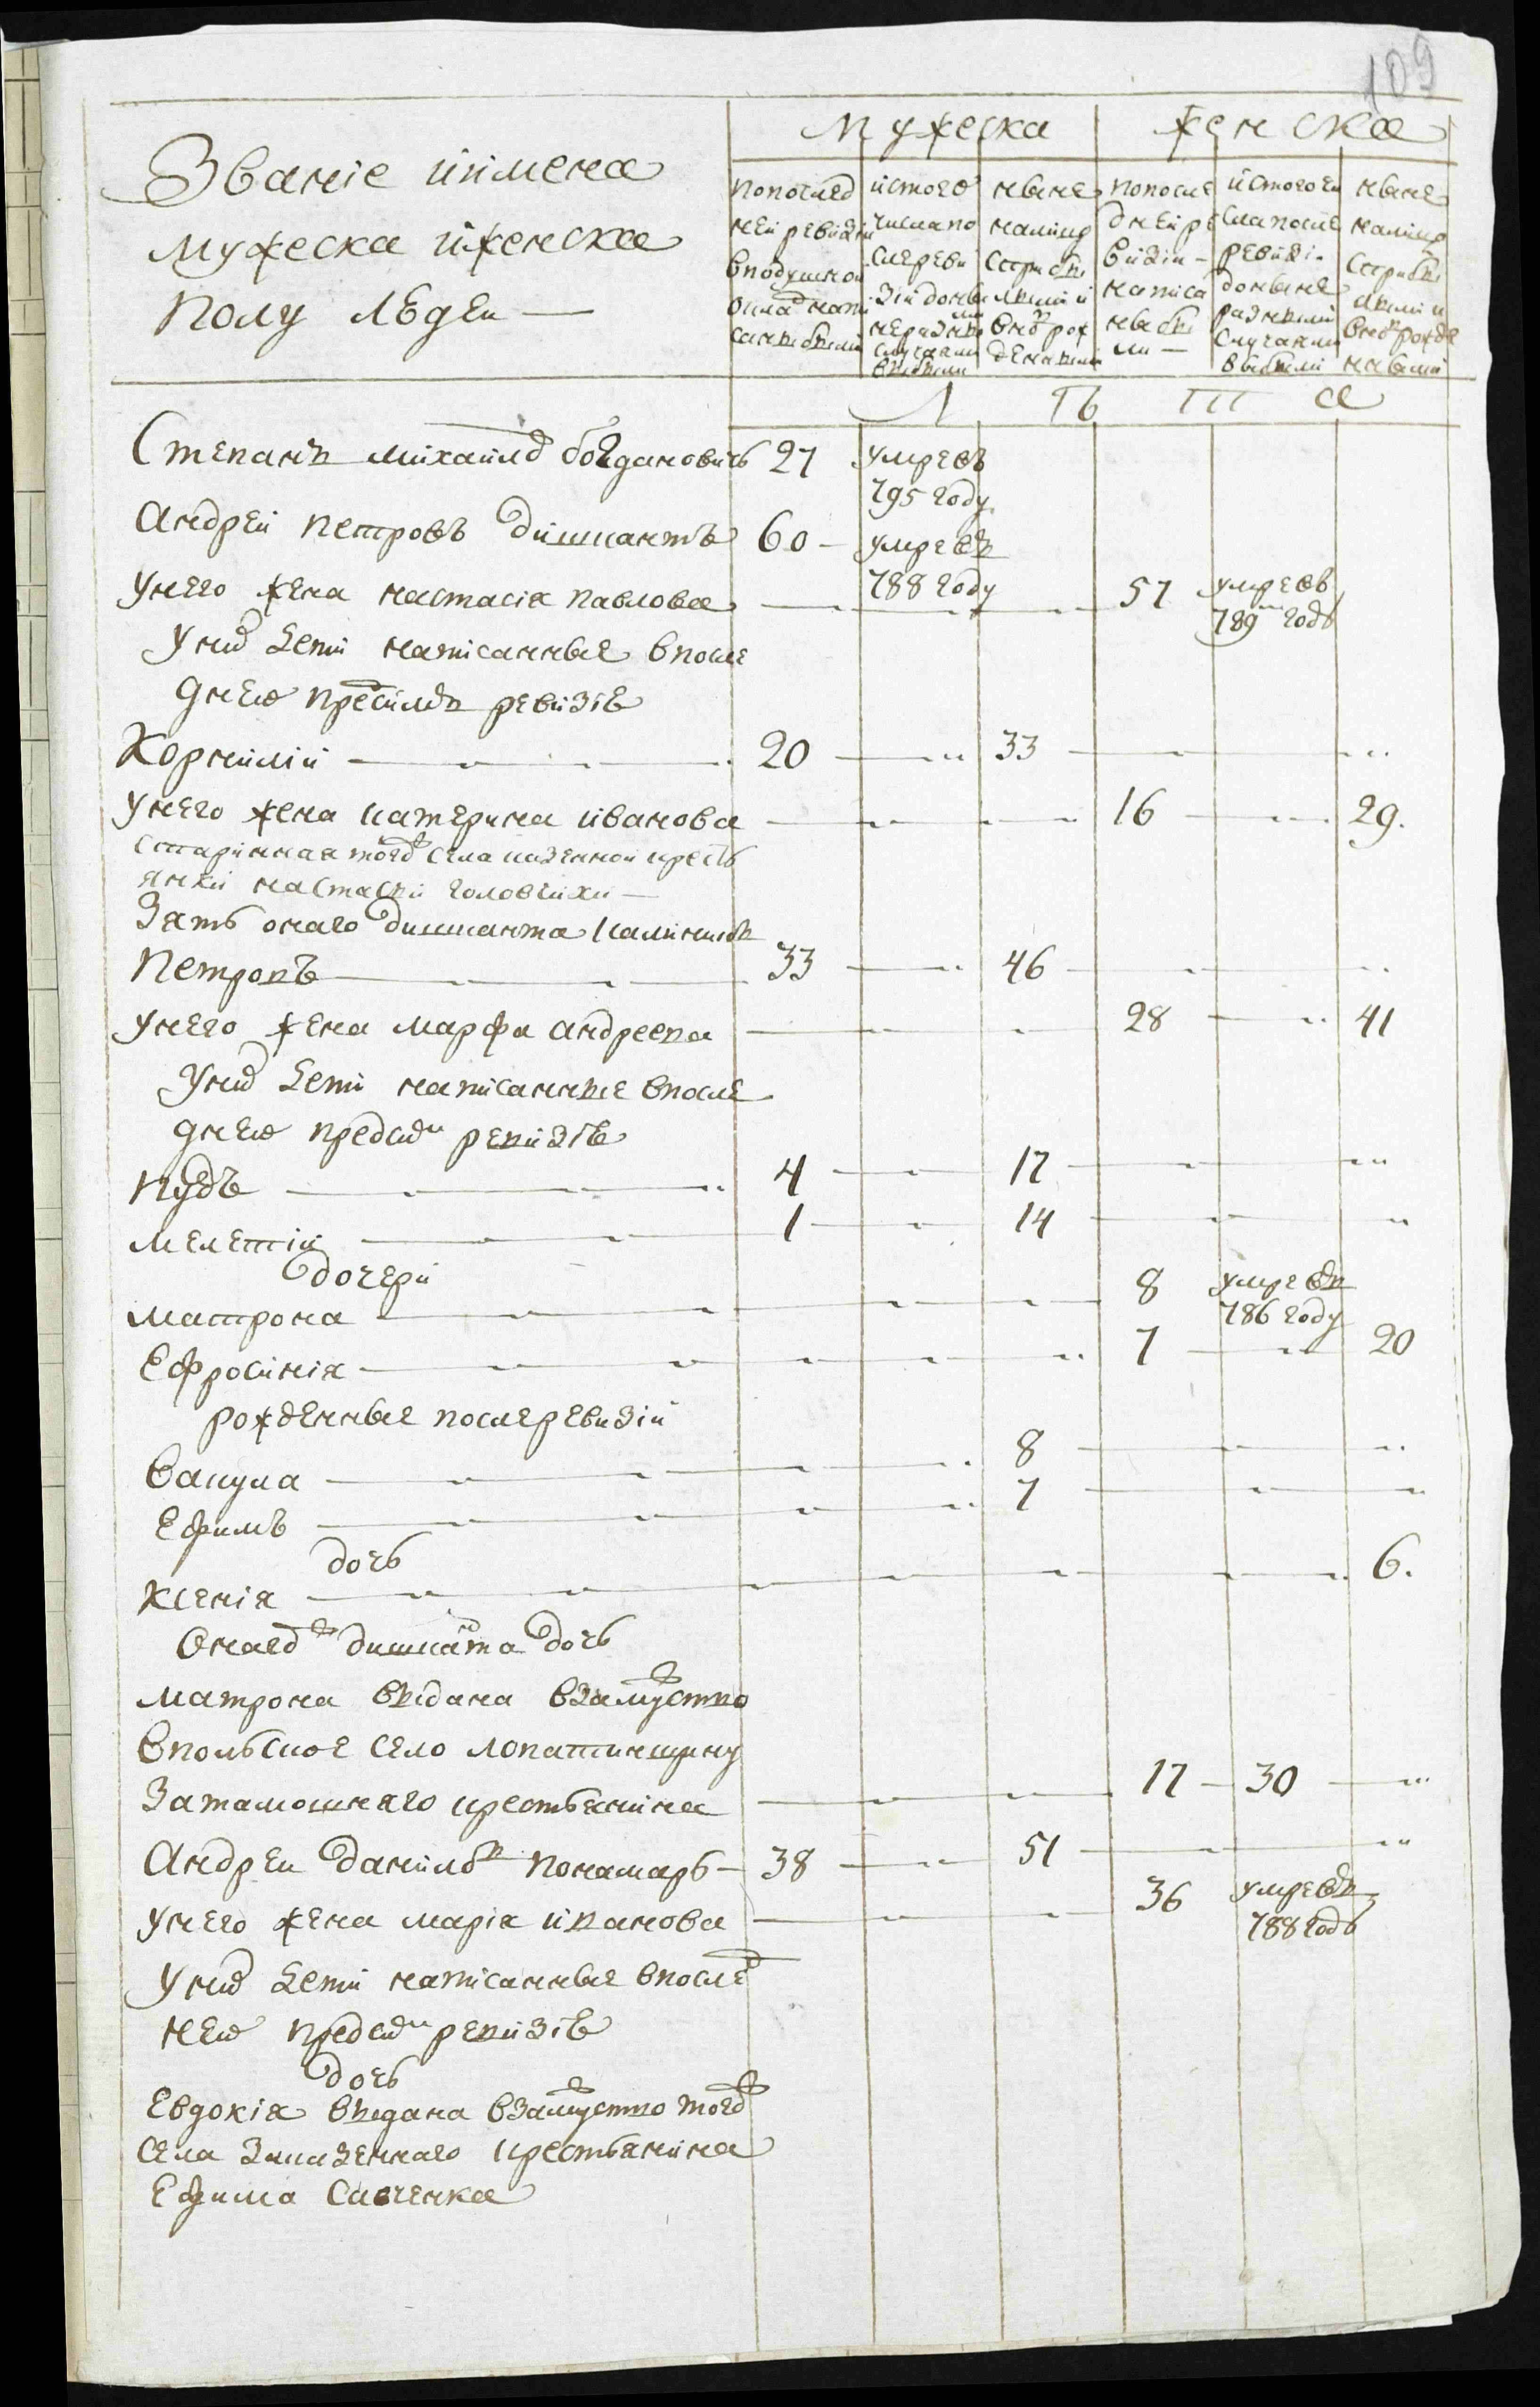 109
Званіе иимена
мужеска иженска
полу людеи —
Мужеска
женска
попослед
ней ревизіи
вподушной
оклад напи
санныхъ
истого
числа по
сле реви
зіи до ныне
разными
случаями
выбыли
ныне
налицо
попосле
дней ре
визіи —
написа
ны бы
ли —
истого чи
сла после
ревизі
доныне
разными
случаями
выбыли
ныне
налицо
Л Ѣ Т А
Степанъ михайлов богдановичь 27 умре въ
795 году
андрей петровъ дишкантъ 60 — умре въ
788 году
унего жена настасіа павлова — 57 умре въ
789 годъ
Уних дети написанные впосле
днею пред сим ревизіе
Корнилій — 20 — 33 —
унего жена катерина иванова — 16 — 29.
старинная того села казенной кресть
янки настасьи головчихи —
Зять онаго дишканта калиник
Петровъ — 33 — 46 —
унего жена марфа андреева — 28 — 41
Уних дети написанные впосле
днею пред сим ревизіе
Пудъ — 4 — 17 —
мелетій — 1 — 14 —
дочери
матрона — 8 умре въ
786 году
Ефросинія — 7 — 20
рожденные послеревизіи
вакула — 8 —
Ефимъ — 7 —
дочь
ксенія — 6.
Онаго дишканта дочь
матрона выдана взамуство
впольское село лопатинщину
Затамошняго крестьянина — 17 — 30 —
Андреи данилов понамарь — 38 — 51 —
унего жена маріа иванова — 36 умре въ
788 годъ
Уних дети написанные впослед
нею пред сим ревизіе
дочь
Евдокіа выдана взамуство того
села заказеннаго крестьянина
Ефима савченка